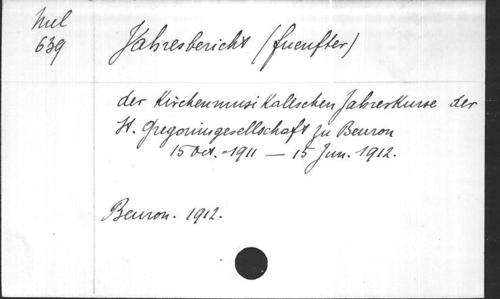 Mel
639
Jahresbericht (fuenfter)
der Kirchenmusikalischen Jahreskurse der
St. Gregoriusgesellschaft zu Beuron
15 Oct. 1911 — 15 Jun. 1912.
Beuron. 1912.